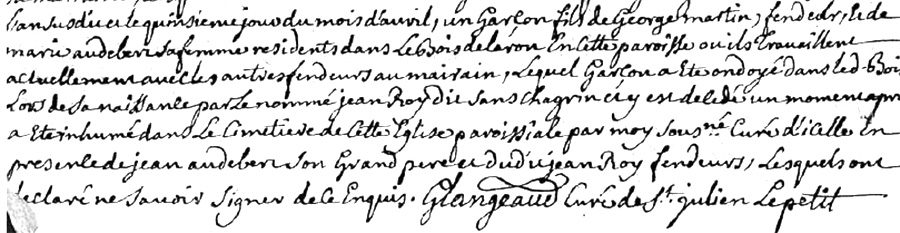 L'an susdit et le quinsieme jour du mois d'avril, un Garçon fils de George martin, fendeur, et de
marie audebert sa femme residents dans Le Bois de laron En Cette paroisse ou ils travaillent
actuellement avec les autres fendeurs au mairain, Lequel Garçon a Eté ondoyé dans led. Bois
Lors de sa naissance par Le nommé jean Roy dit sans chagrin et y est decedé un moment apre
a Ete inhumé dans Le Cimetiere de Cette Eglise paroissiale par moy sous.né Curé d'icelle En
presence de jean audebert son Grand pere et dudit jean Roy fendeurs, Lesquels ont
declaré ne savoir signer de Ce Enquis. Glangeaud Curé de St. julien Le petit